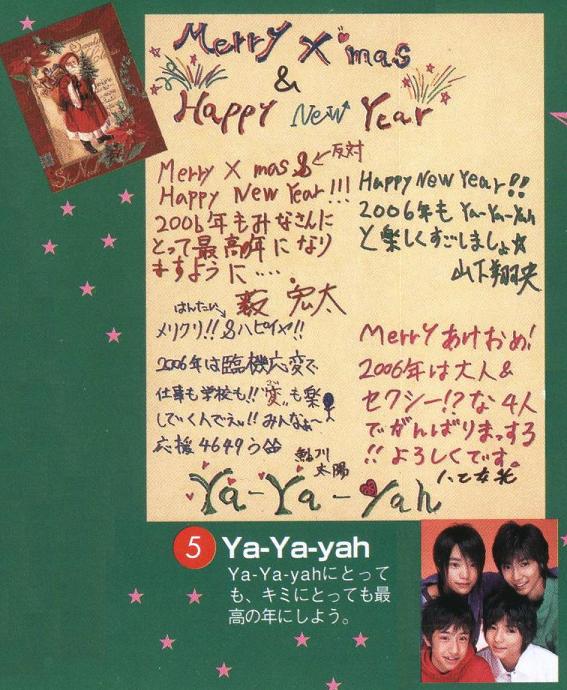 Merry X'mas
&
Happy New Year
Merry X mas & ←反対
Happy New Year!!!
2006年もみなさんに
とって最高の年になり
ますように‥‥
はんたい 薮 宏太
メリクリ!!&ハピイヤ!!
2006年は臨機応変で
仕事も学校も!! "変"も楽
しでいくんでえぃ!! みんなぁ〜
応援4649う
鮎川
太陽
Happy New Year!!
2006年も Ya-Ya-yah
と楽しくすごしましょ☆
山下翔央
Merry あけおめ!
2006年は大人&
セクシー!?な4人
でがんばりまっする
!! よろしくです。
八乙女光
Ya-Ya-yah
5 Ya-Ya-yah
Ya-Ya-yahにとって
も、キミにとっても最
高の年にしよう。